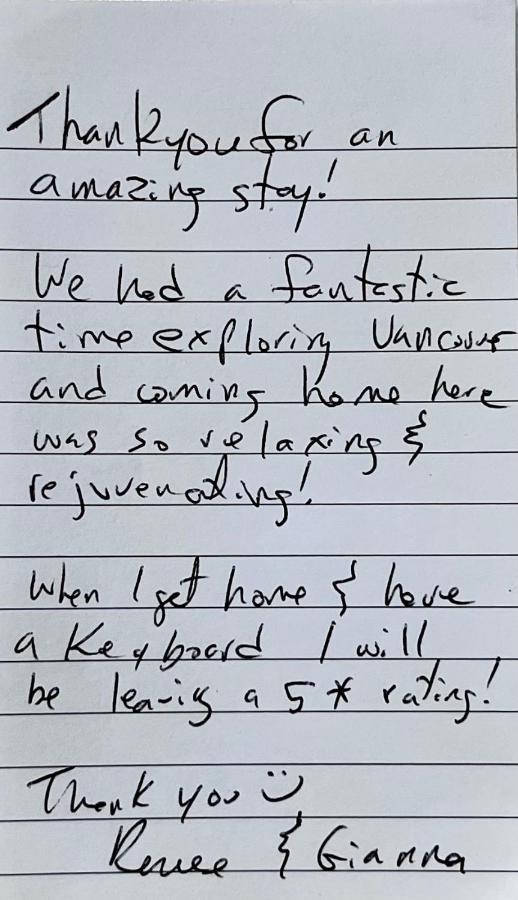 Thank you for an
amazing stay!
We had a fantastic
time exploring Vancouver
and coming home here
was so relaxing &
rejuvenating!
When I get home & have
a Keyboard I will
be leaving a 5* rating!
Thank you :)
Renee & Gianna